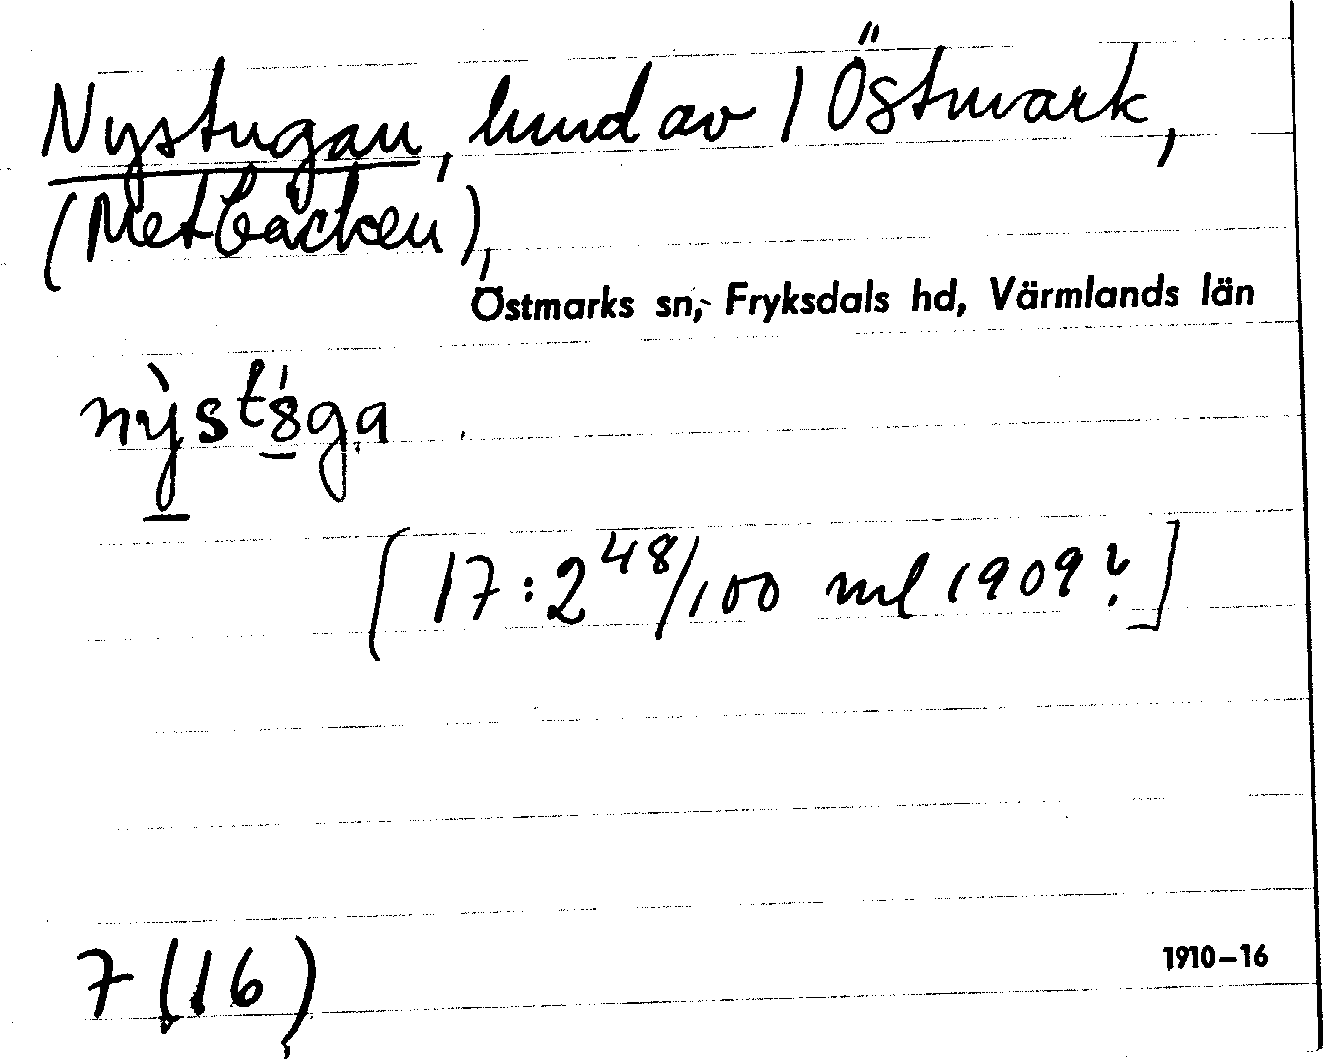 Nystugan, hmd av 1 Östmark,
(Metbäcken),
Östmarks sn, Fryksdals hd, Värmlands län
[17:2 48/100 ml 1909?]
7 (16)
1910–16